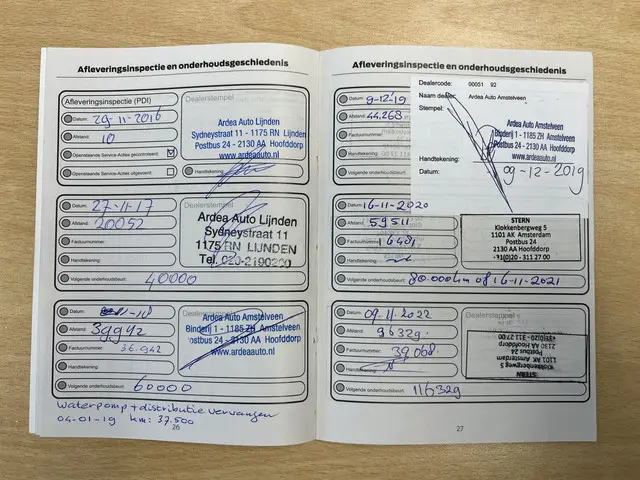 Afleveringsinspectie en onderhoudsgeschiedenis
Afleveringsinspectie (PDI)
Datum: 29-11-2016
Afstand: 10
Openstaande Service-Acties gecontroleerd:
Openstaande Service-Acties uitgevoerd:
Dealerstempel
Ardea Auto Lijnden
Sydneystraat 11 - 1175 RN Lijnden
Postbus 24 - 2130 AA Hoofddorp
www.ardeaauto.nl
Handtekening:
Datum: 27-11-17
Afstand: 20052
Factuurnummer:
Handtekening:
Volgende onderhoudsbeurt: 40000
Ardea Auto Lijnden
Sydneystraat 11
1175 RN LIJNDEN
Tel. 020-2190200
Datum:
Afstand: 39942
Factuurnummer: 36.942
Handtekening:
Volgende onderhoudsbeurt: 60000
Ardea Auto Amstelveen
Binderij 1 - 1185 ZH Amstelveen
Postbus 24 - 2130 AA Hoofddorp
www.ardeaauto.nl
Waterpomp + distributie vervangen
04-01-19 km: 37.500
26
Afleveringsinspectie en onderhoudsgeschiedenis
Datum: 9-12-19
Afstand: 44.263
Factuurnummer:
Handtekening:
Volgende
Dealercode: 00051 92
Naam dealer: Ardea Auto Amstelveen
Stempel:
Ardea Auto Amstelveen
Binderij 1 - 1185 ZH Amstelveen
Postbus 24 - 2130 AA Hoofddorp
www.ardeaauto.nl
Handtekening:
Datum: 09-12-2019
Datum: 16-11-2020
Afstand: 59511
Factuurnummer: 16481
Handtekening:
Volgende onderhoudsbeurt: 80.000km of 16-11-2021
STERN
Klokkenbergweg 5
1101 AK Amsterdam
Postbus 24
2130 AA Hoofddorp
+31(0)20 - 311 27 00
Datum: 09-11-2022
Afstand: 96329
Factuurnummer: 39068
Handtekening:
Volgende onderhoudsbeurt: 116329
Dealerstempel
STERN
Klokkenbergweg 5
1101 AK Amsterdam
Postbus 24
2130 AA Hoofddorp
+31(0)20 - 311 27 00
27